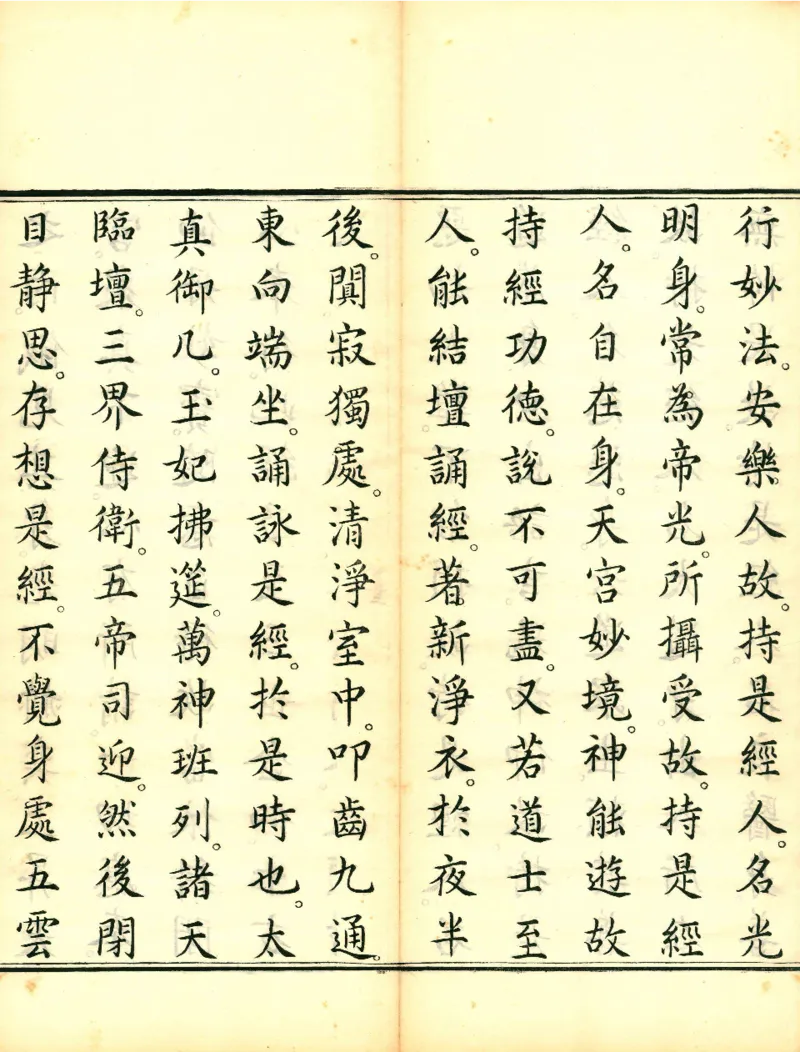 行妙法。安樂人故。持是經人。名光
明身。常為帝光。所攝受故。持是經
人。名自在身。天宮妙境。神能遊故
持經功德。說不可盡。又若道士至
人。能結壇誦經。著新淨衣。於夜半
後。闃寂獨處。清淨室中。叩齒九通。
東向端坐。誦詠是經。於是時也。太
真御几。玉妃拂筵。萬神班列。諸天
臨壇。三界侍衛。五帝司迎。然後閉
目靜思。存想是經。不覺身處五雲